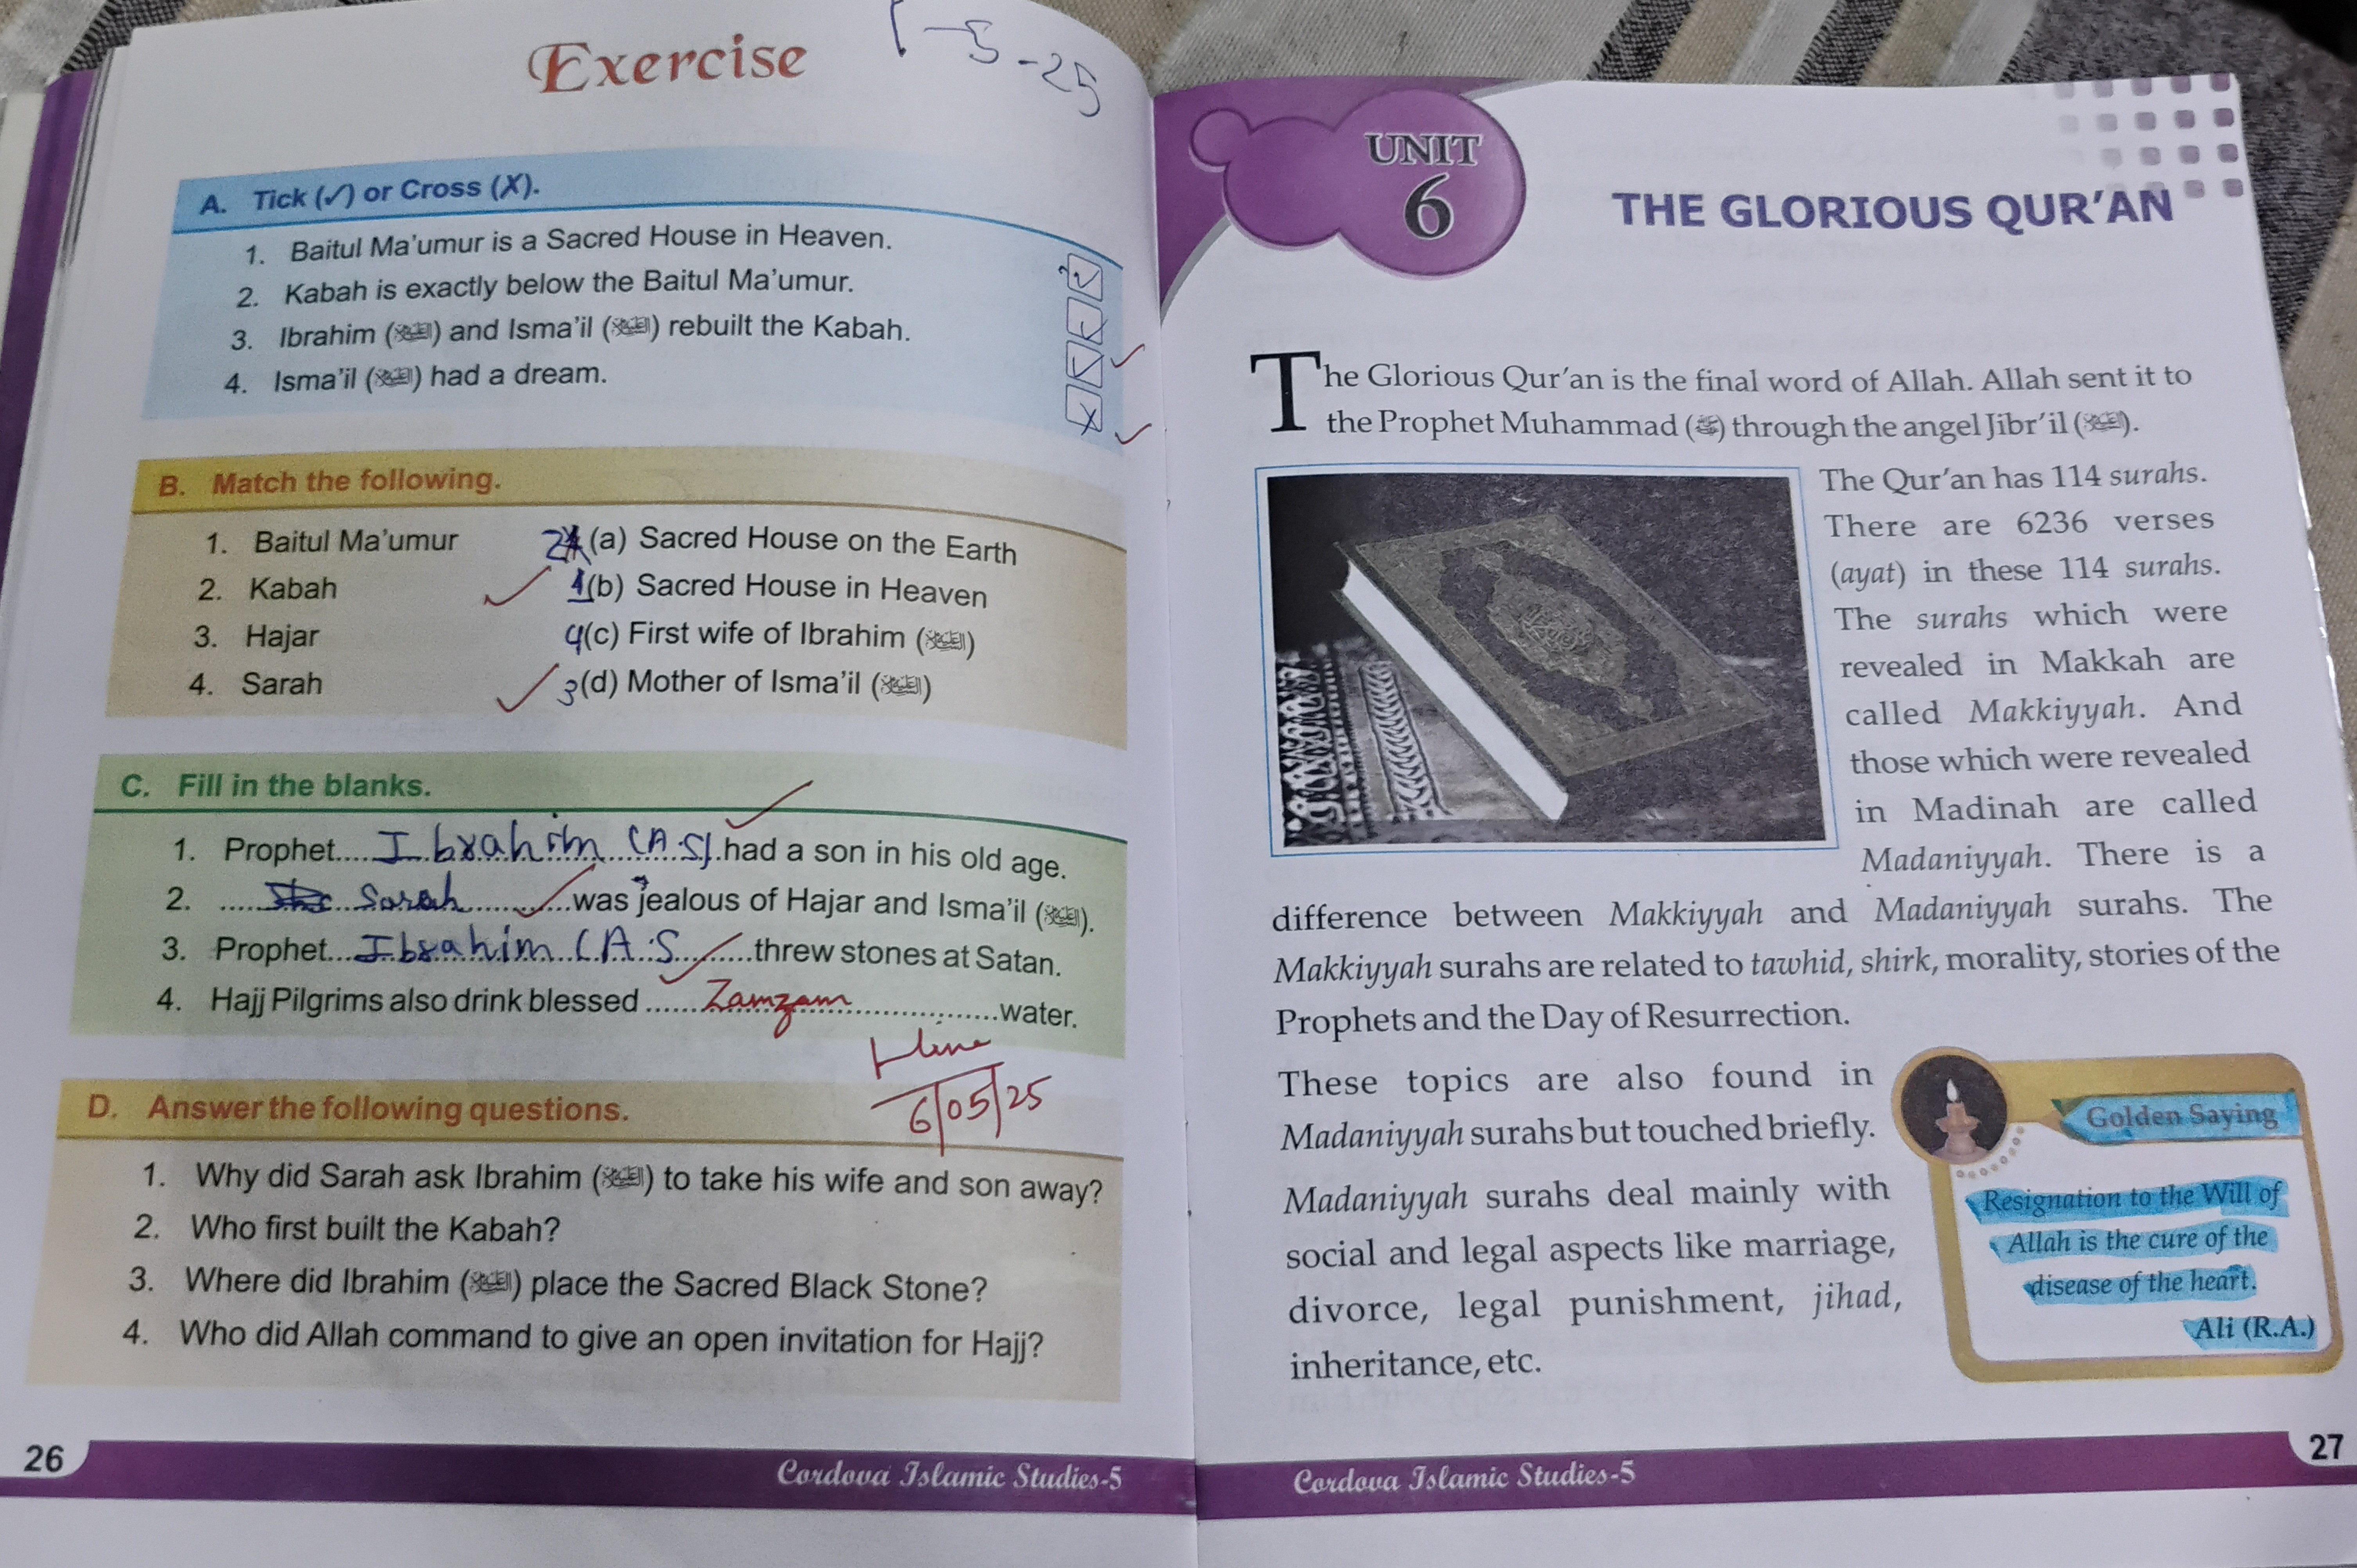 Exercise
1-5-25
A. Tick (✓) or Cross (X).
1. Baitul Ma'umur is a Sacred House in Heaven.
2. Kabah is exactly below the Baitul Ma'umur.
3. Ibrahim (عليه السلام) and Isma'il (عليه السلام) rebuilt the Kabah.
4. Isma'il (عليه السلام) had a dream.
B. Match the following.
1. Baitul Ma'umur 2 (a) Sacred House on the Earth
2. Kabah 1 (b) Sacred House in Heaven
3. Hajar 4 (c) First wife of Ibrahim (عليه السلام)
4. Sarah 3 (d) Mother of Isma'il (عليه السلام)
C. Fill in the blanks.
1. Prophet.... Ibrahim (A.S). had a son in his old age.
2. ..... Sarah ......... was jealous of Hajar and Isma'il (عليه السلام).
3. Prophet... Ibrahim (A.S ........threw stones at Satan.
4. Hajj Pilgrims also drink blessed ..... Zamzam ..............water.
6/05/25
D. Answer the following questions.
1. Why did Sarah ask Ibrahim (عليه السلام) to take his wife and son away?
2. Who first built the Kabah?
3. Where did Ibrahim (عليه السلام) place the Sacred Black Stone?
4. Who did Allah command to give an open invitation for Hajj?
26
Cordova Islamic Studies-5
UNIT
6
THE GLORIOUS QUR'AN
The Glorious Qur'an is the final word of Allah. Allah sent it to
the Prophet Muhammad (ﷺ) through the angel Jibr'il (عليه السلام).
The Qur'an has 114 surahs.
There are 6236 verses
(ayat) in these 114 surahs.
The surahs which were
revealed in Makkah are
called Makkiyyah. And
those which were revealed
in Madinah are called
Madaniyyah. There is a
difference between Makkiyyah and Madaniyyah surahs. The
Makkiyyah surahs are related to tawhid, shirk, morality, stories of the
Prophets and the Day of Resurrection.
These topics are also found in
Madaniyyah surahs but touched briefly.
Madaniyyah surahs deal mainly with
social and legal aspects like marriage,
divorce, legal punishment, jihad,
inheritance, etc.
Golden Saying
Resignation to the Will of
Allah is the cure of the
disease of the heart.
Ali (R.A.)
Cordova Islamic Studies-5
27